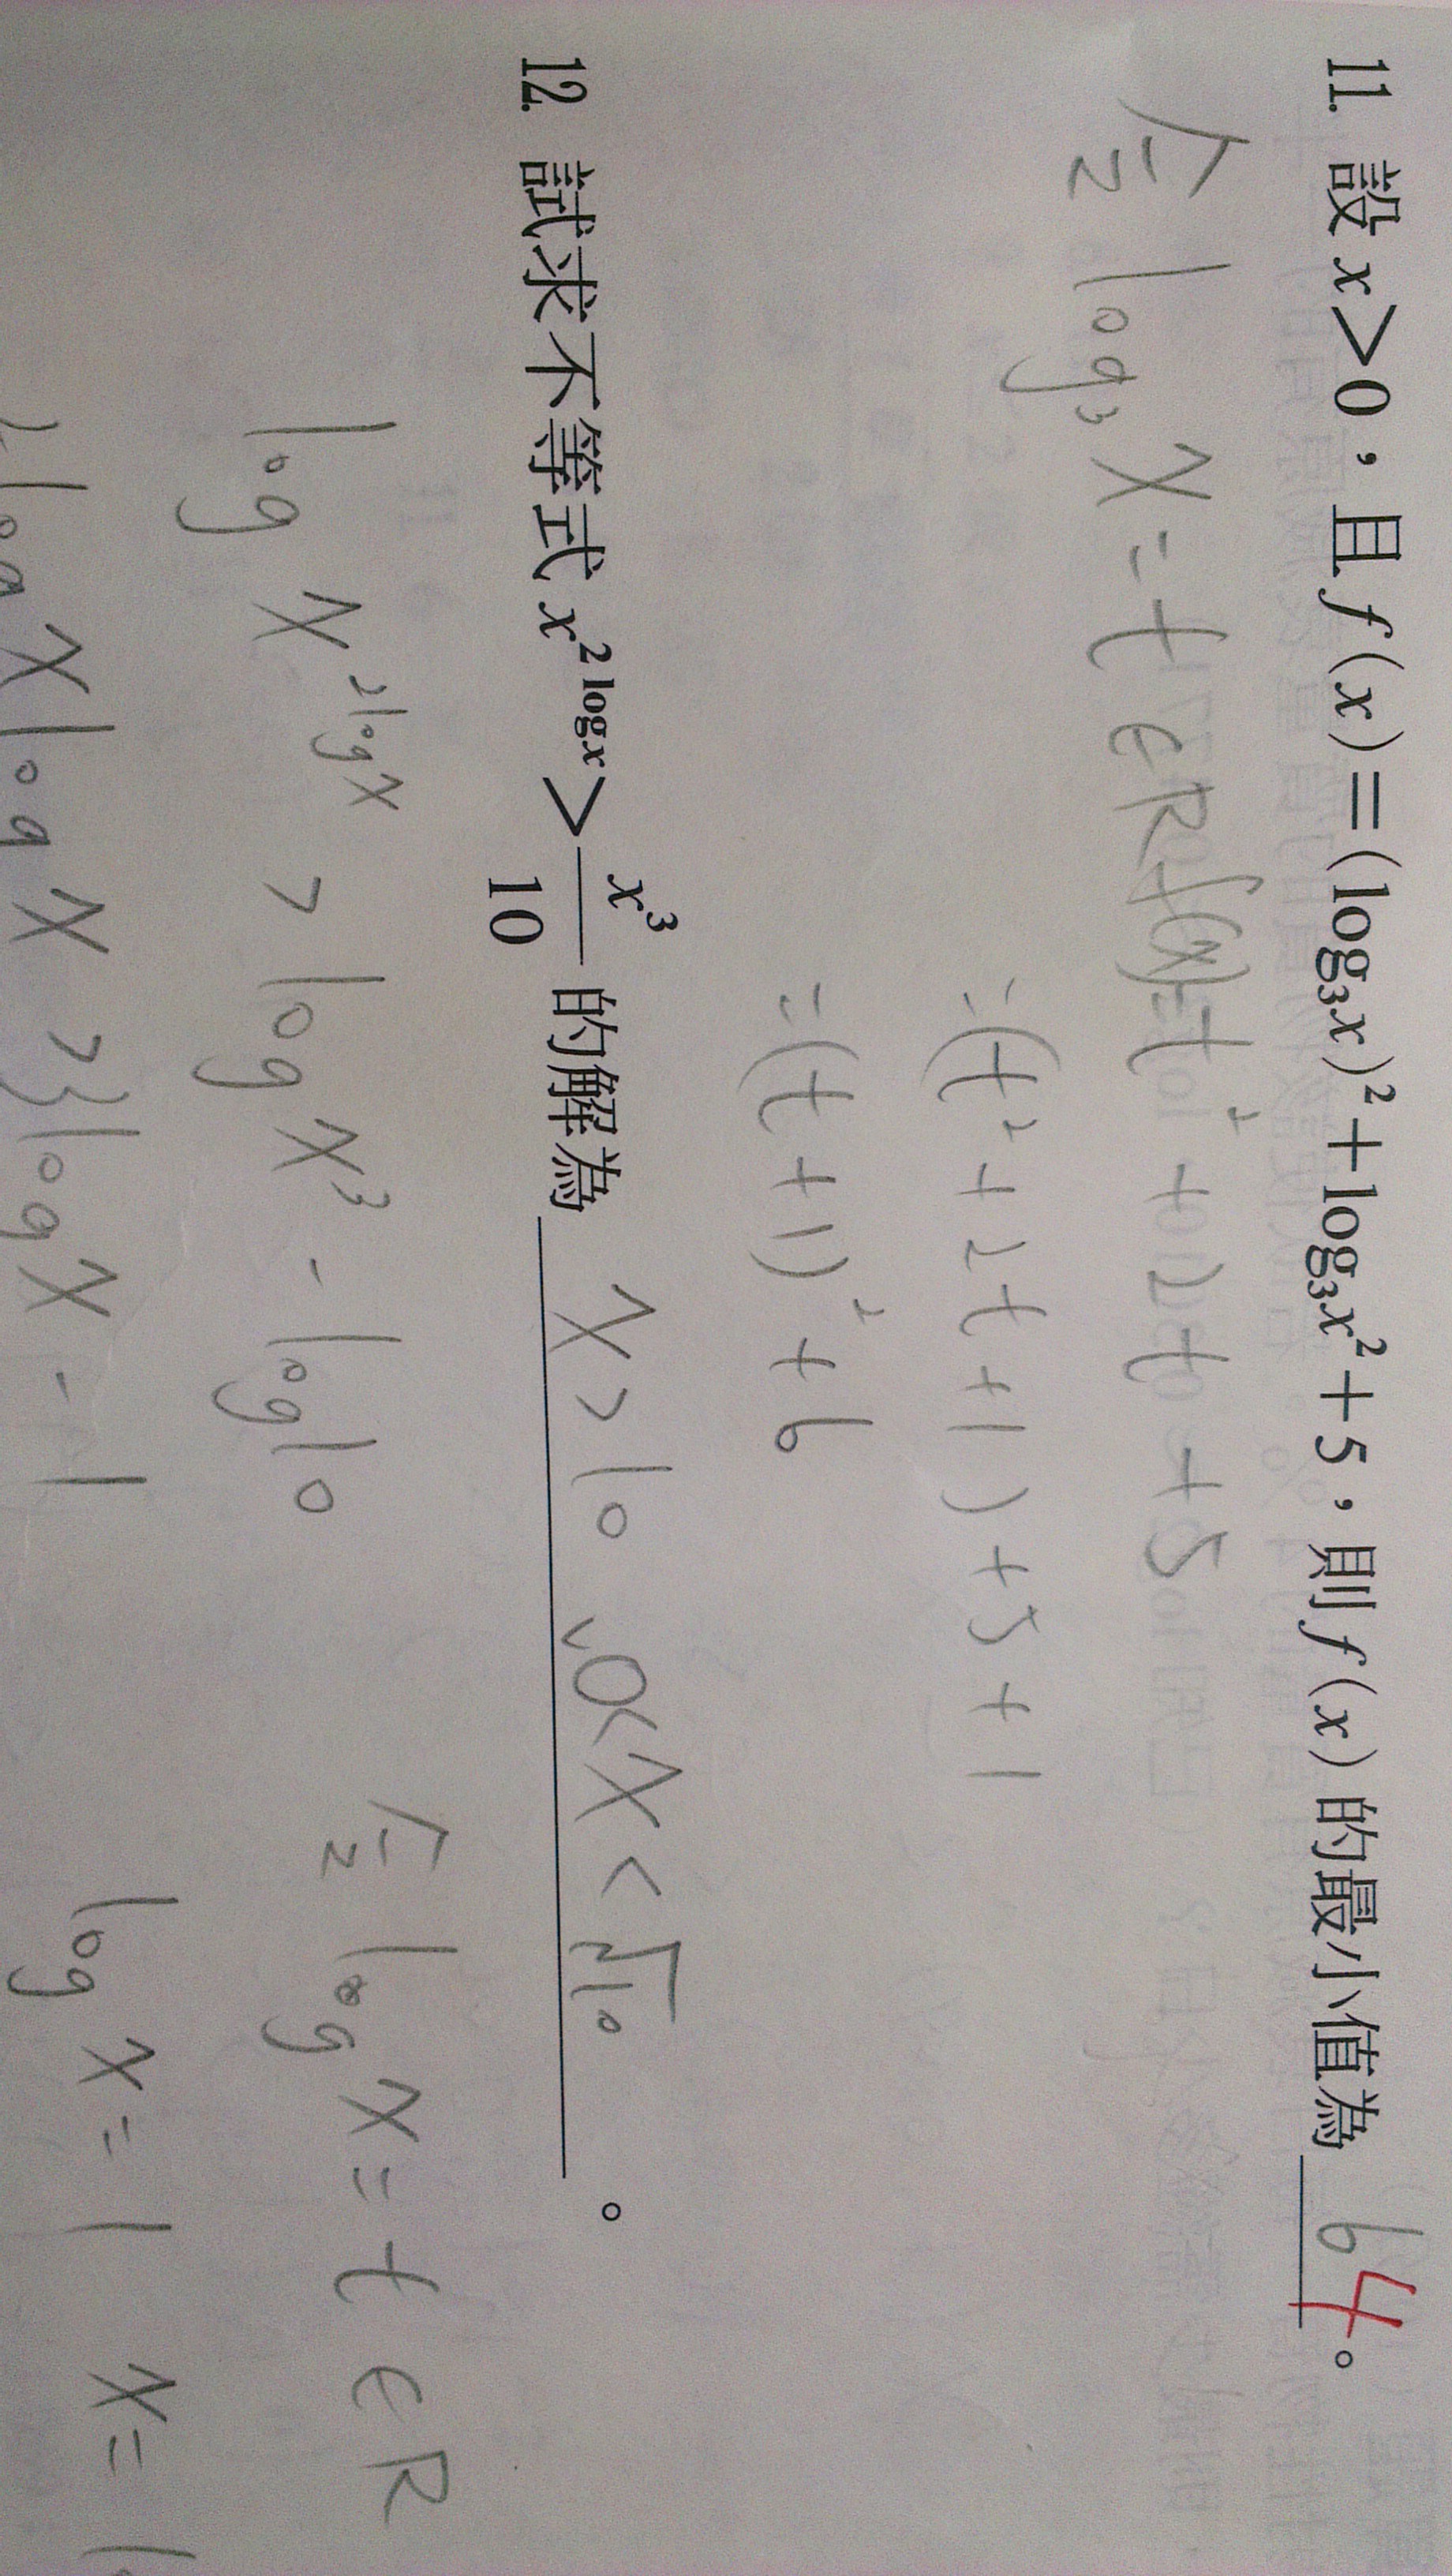 11. 設 x>0，且 f(x)=(log₃x)²+log₃x²+5，則 f(x) 的最小值為 6 4。
令 log₃x=t∈R f(x)=t²+2t+5
=(t²+2t+1)+5+1
=(t+1)²+6
12. 試求不等式 x^(2 log x)>x³/10 的解為 x>10 、0<x<√10 。
log x^(2log x) > log x³ - log10
令 log x=t∈R
log x log x >3log x - 1
log x=1 x=